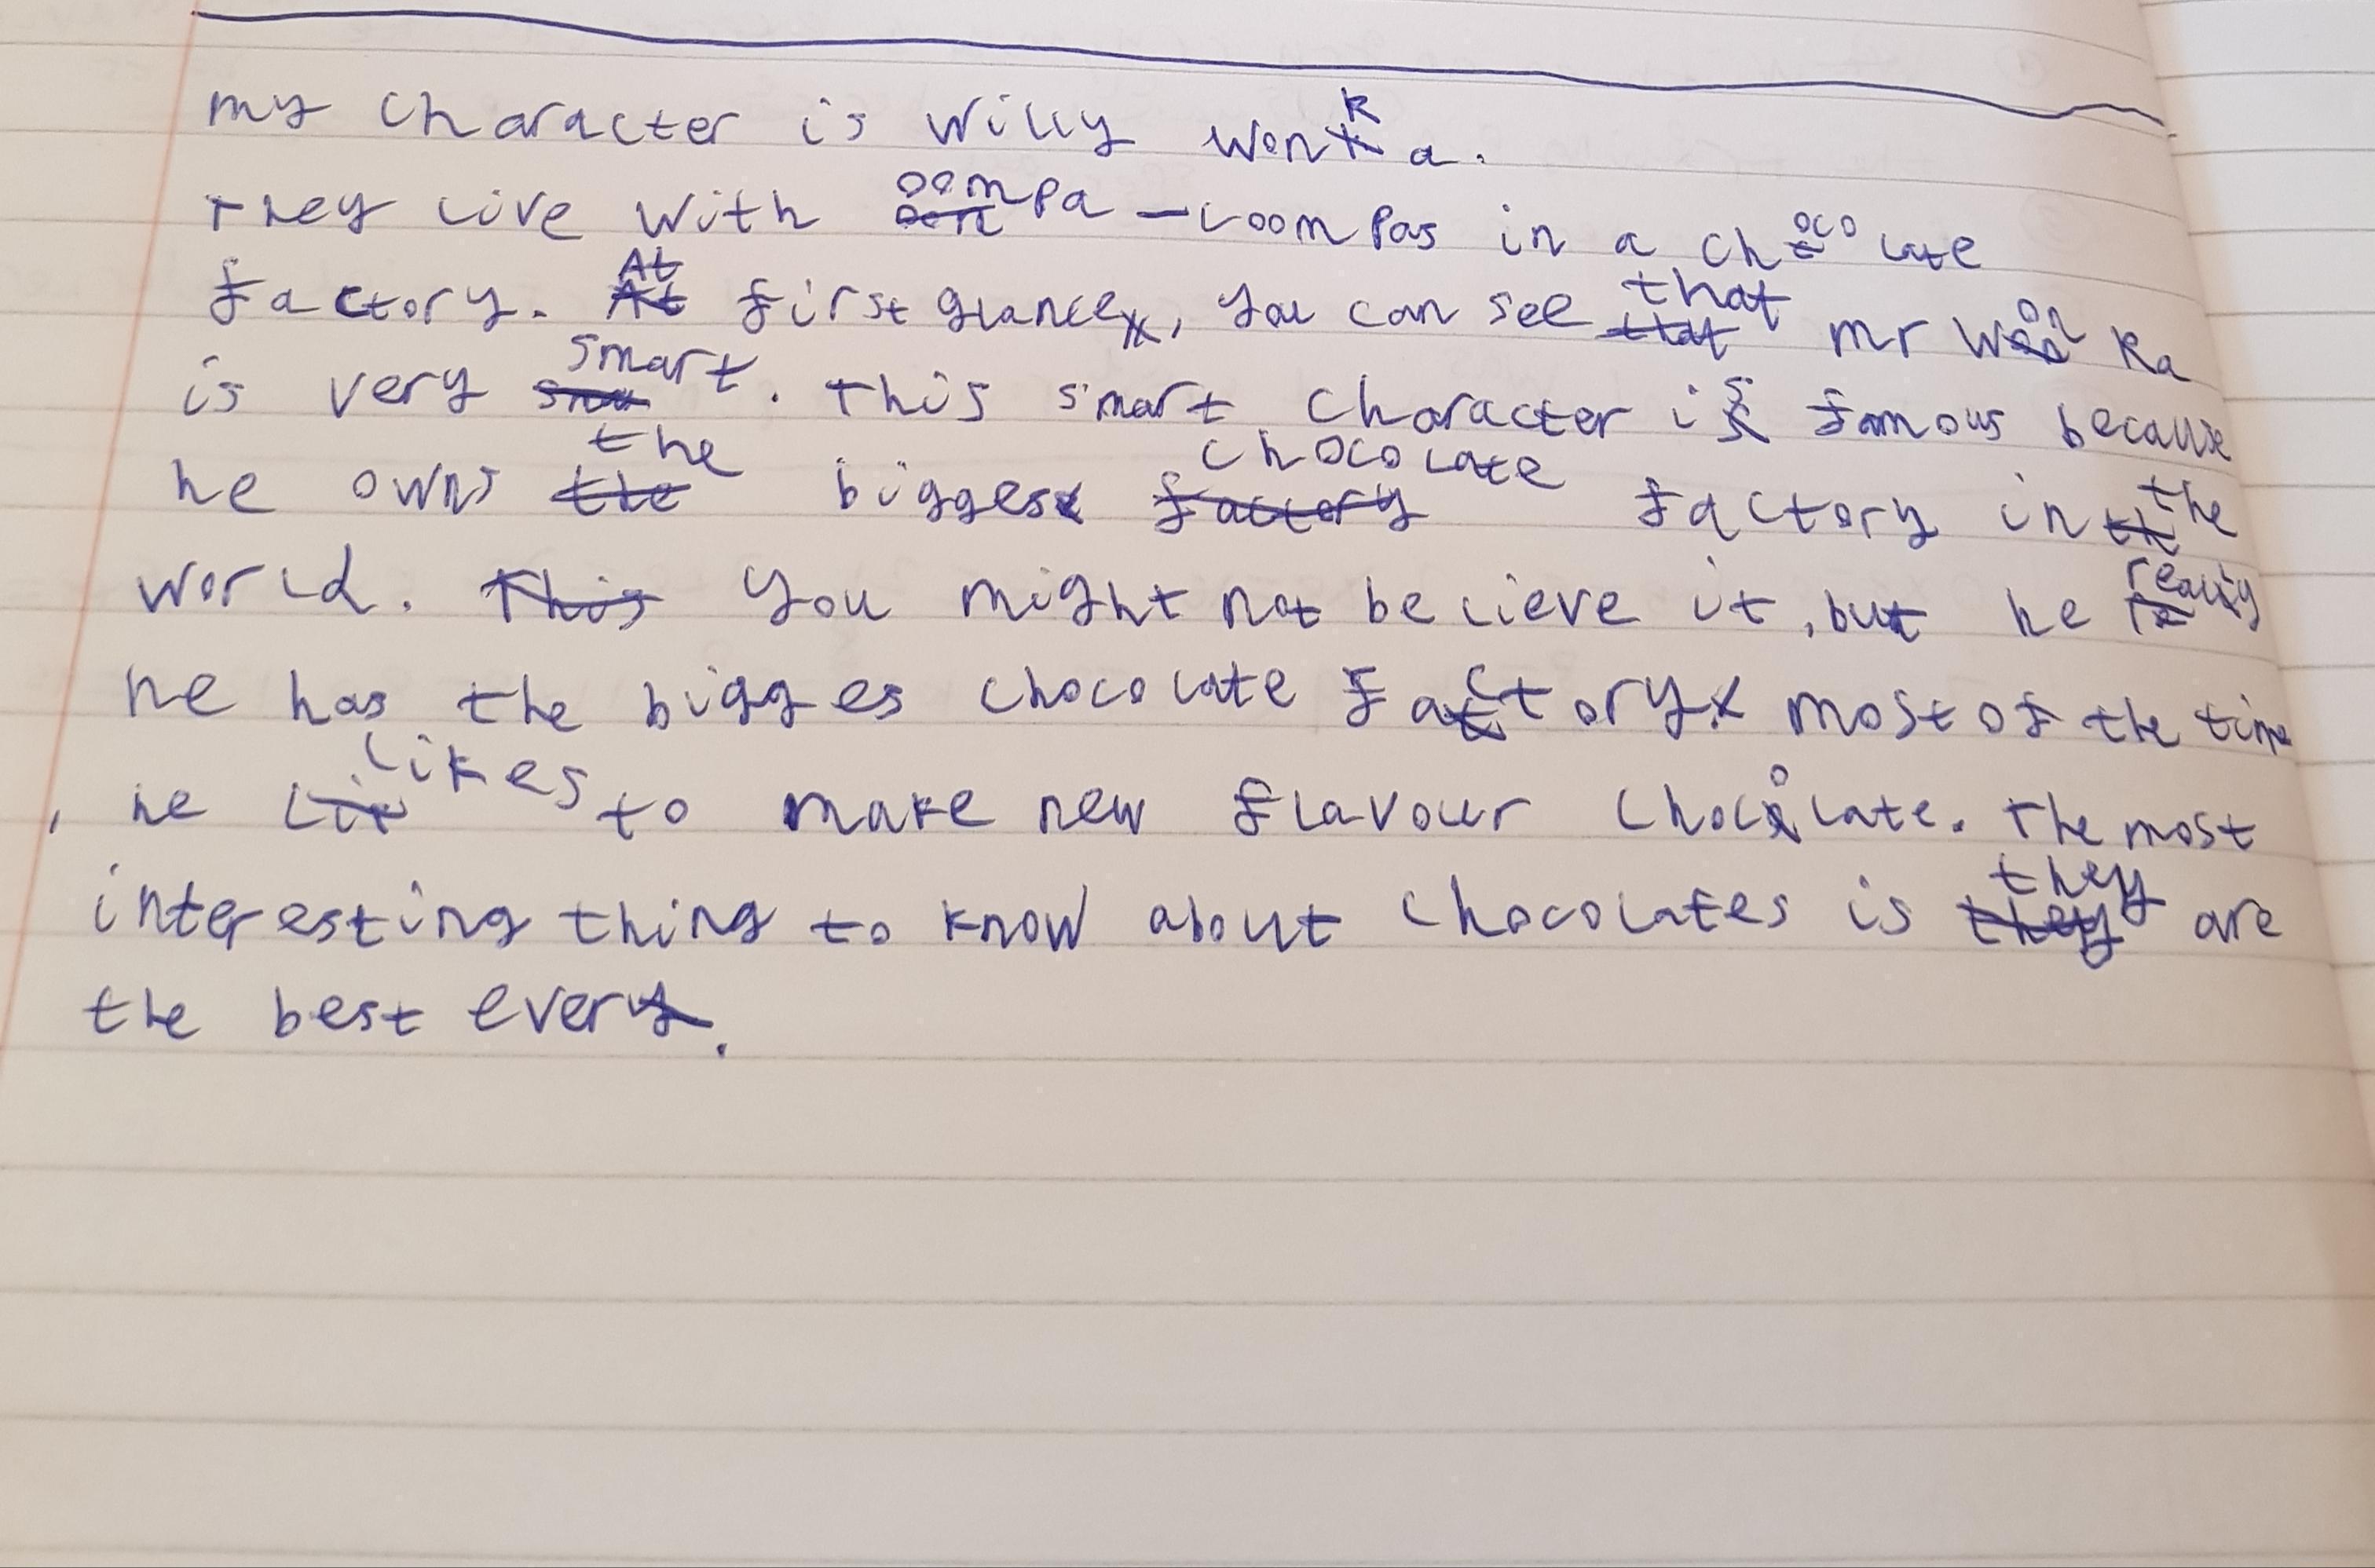 my character is willy wonka.
They live with oompa-loompas in a chocolate
factory. At first glance, you can see that mr wonka
is very smart. This smart character is famous because
he owns the biggest chocolate factory in the
world. This you might not believe it, but he really
he has the bigges chocolate factory. most of the time
, he likes to make new flavour chocolate. The most
interesting thing to know about chocolates is they are
the best ever.